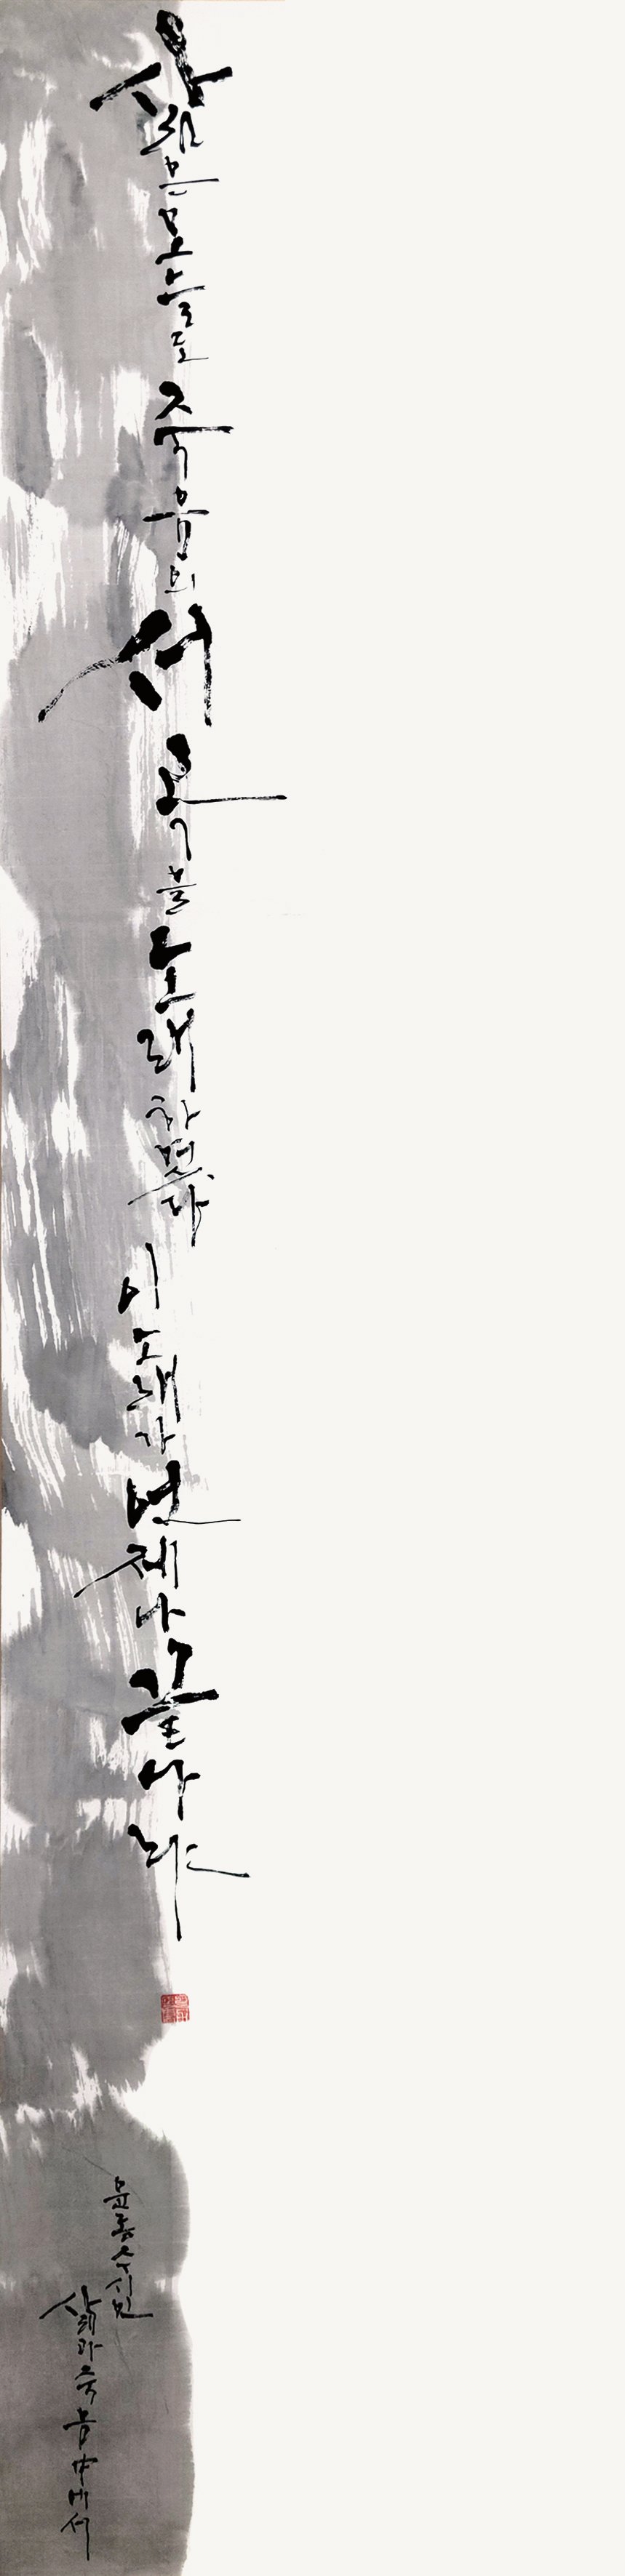 삶은 오늘도 죽음의 서곡을 노래하였다 이 노래가 언제나 끝나랴
윤동주 시인
삶과 죽음 中에서